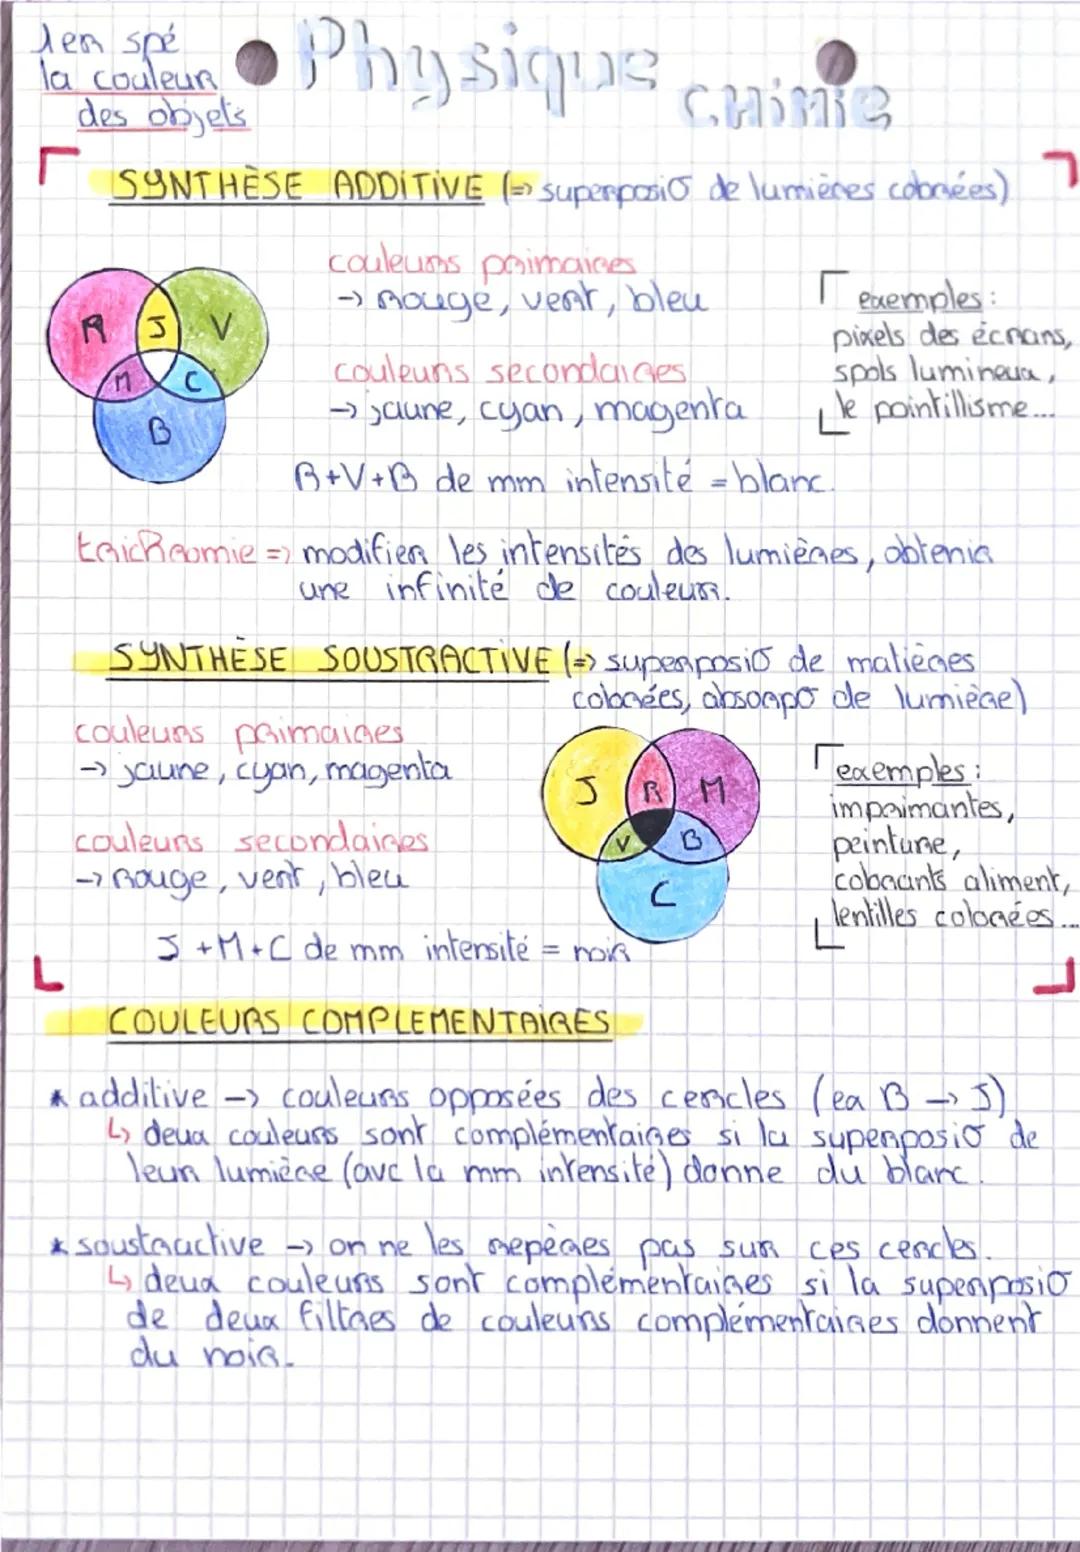 1er spé
la couleur
des objets
Physique
CHiMiE
SYNTHÈSE ADDITIVE (=> superposio de lumières colorées)
R
J
V
M
C
B
couleurs primaires
-> Rouge, vert, bleu
couleurs secondaires
-> jaune, cyan, magenta
exemples :
pixels des écrans,
spots lumineux,
le pointillisme...
R+V+B de mm intensité = blanc.
tricHromie => modifier les intensités des lumières, obtenir
une infinité de couleur.
SYNTHÈSE SOUSTRACTIVE (=> superposio de matières
colorées, absorpo de lumière)
couleurs primaires
-> jaune, cyan, magenta
couleurs secondaires
-> Rouge, vert, bleu
J
R
M
V
B
C
exemples :
imprimantes,
peinture,
colorants aliment,
lentilles colorées...
J + M + C de mm intensité = noir
COULEURS COMPLEMENTAIRES
* additive -> couleurs opposées des cercles (ex B -> J)
↳ deux couleurs sont complémentaires si la superposio de
leur lumière (avc la mm intensité) donne du blanc.
* soustractive -> on ne les repères pas sur ces cercles.
↳ deux couleurs sont complémentaires si la superposio
de deux filtres de couleurs complémentaires donnent
du noir.